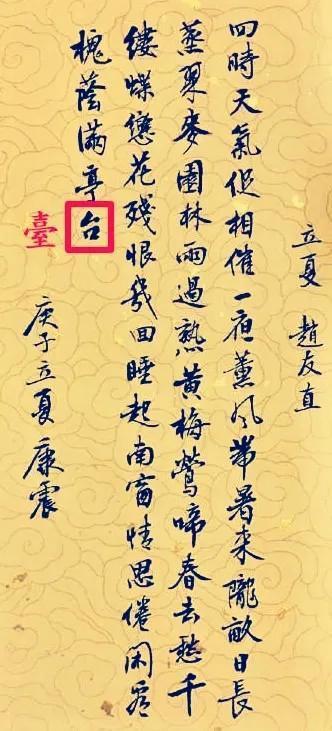 立夏 趙友直
四時天氣促相催一夜薰风帶暑来隴畝日長
蒸翠麥園林雨過熟黄梅鶯啼春去愁千
縷蝶戀花殘恨幾回睡起南窗情思倦闲看
槐蔭滿亭台
臺
庚子立夏康震